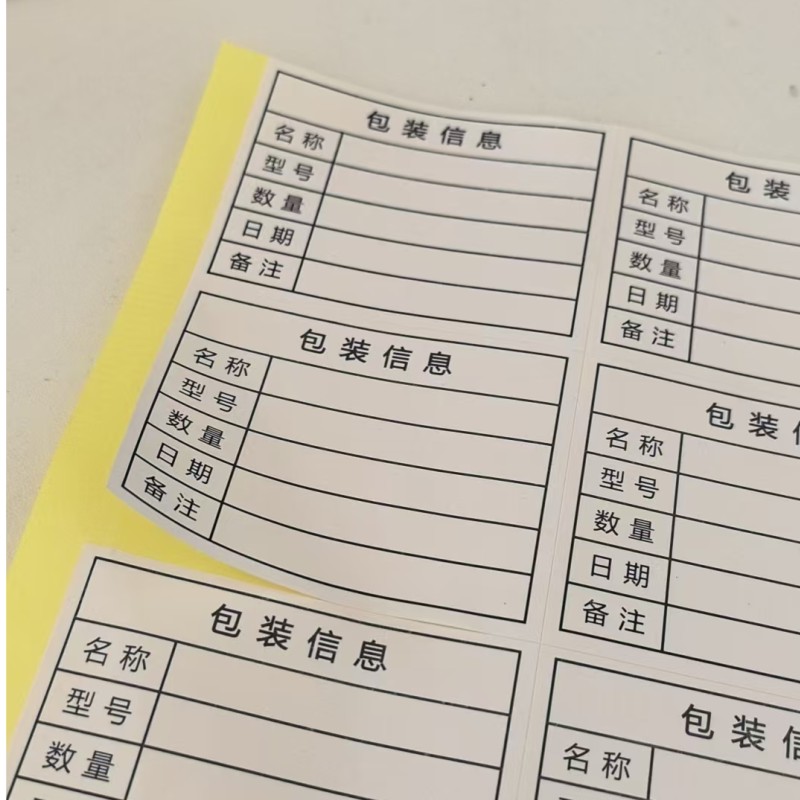 包装信息
名称
型号
数量
日期
备注
包装
名称
型号
数量
日期
备注
包装信息
名称
型号
数量
日期
备注
包装信
名称
型号
数量
日期
备注
包装信息
名称
型号
数量
包装信
名称